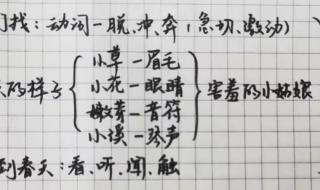 们找:动词一脱、冲、奔(急切、激动)
天的样子{
小草一眉毛
小花一眼睛
嫩芽一音符
小溪一琴声
}害羞的小姑娘
到春天:看、听、闻、触